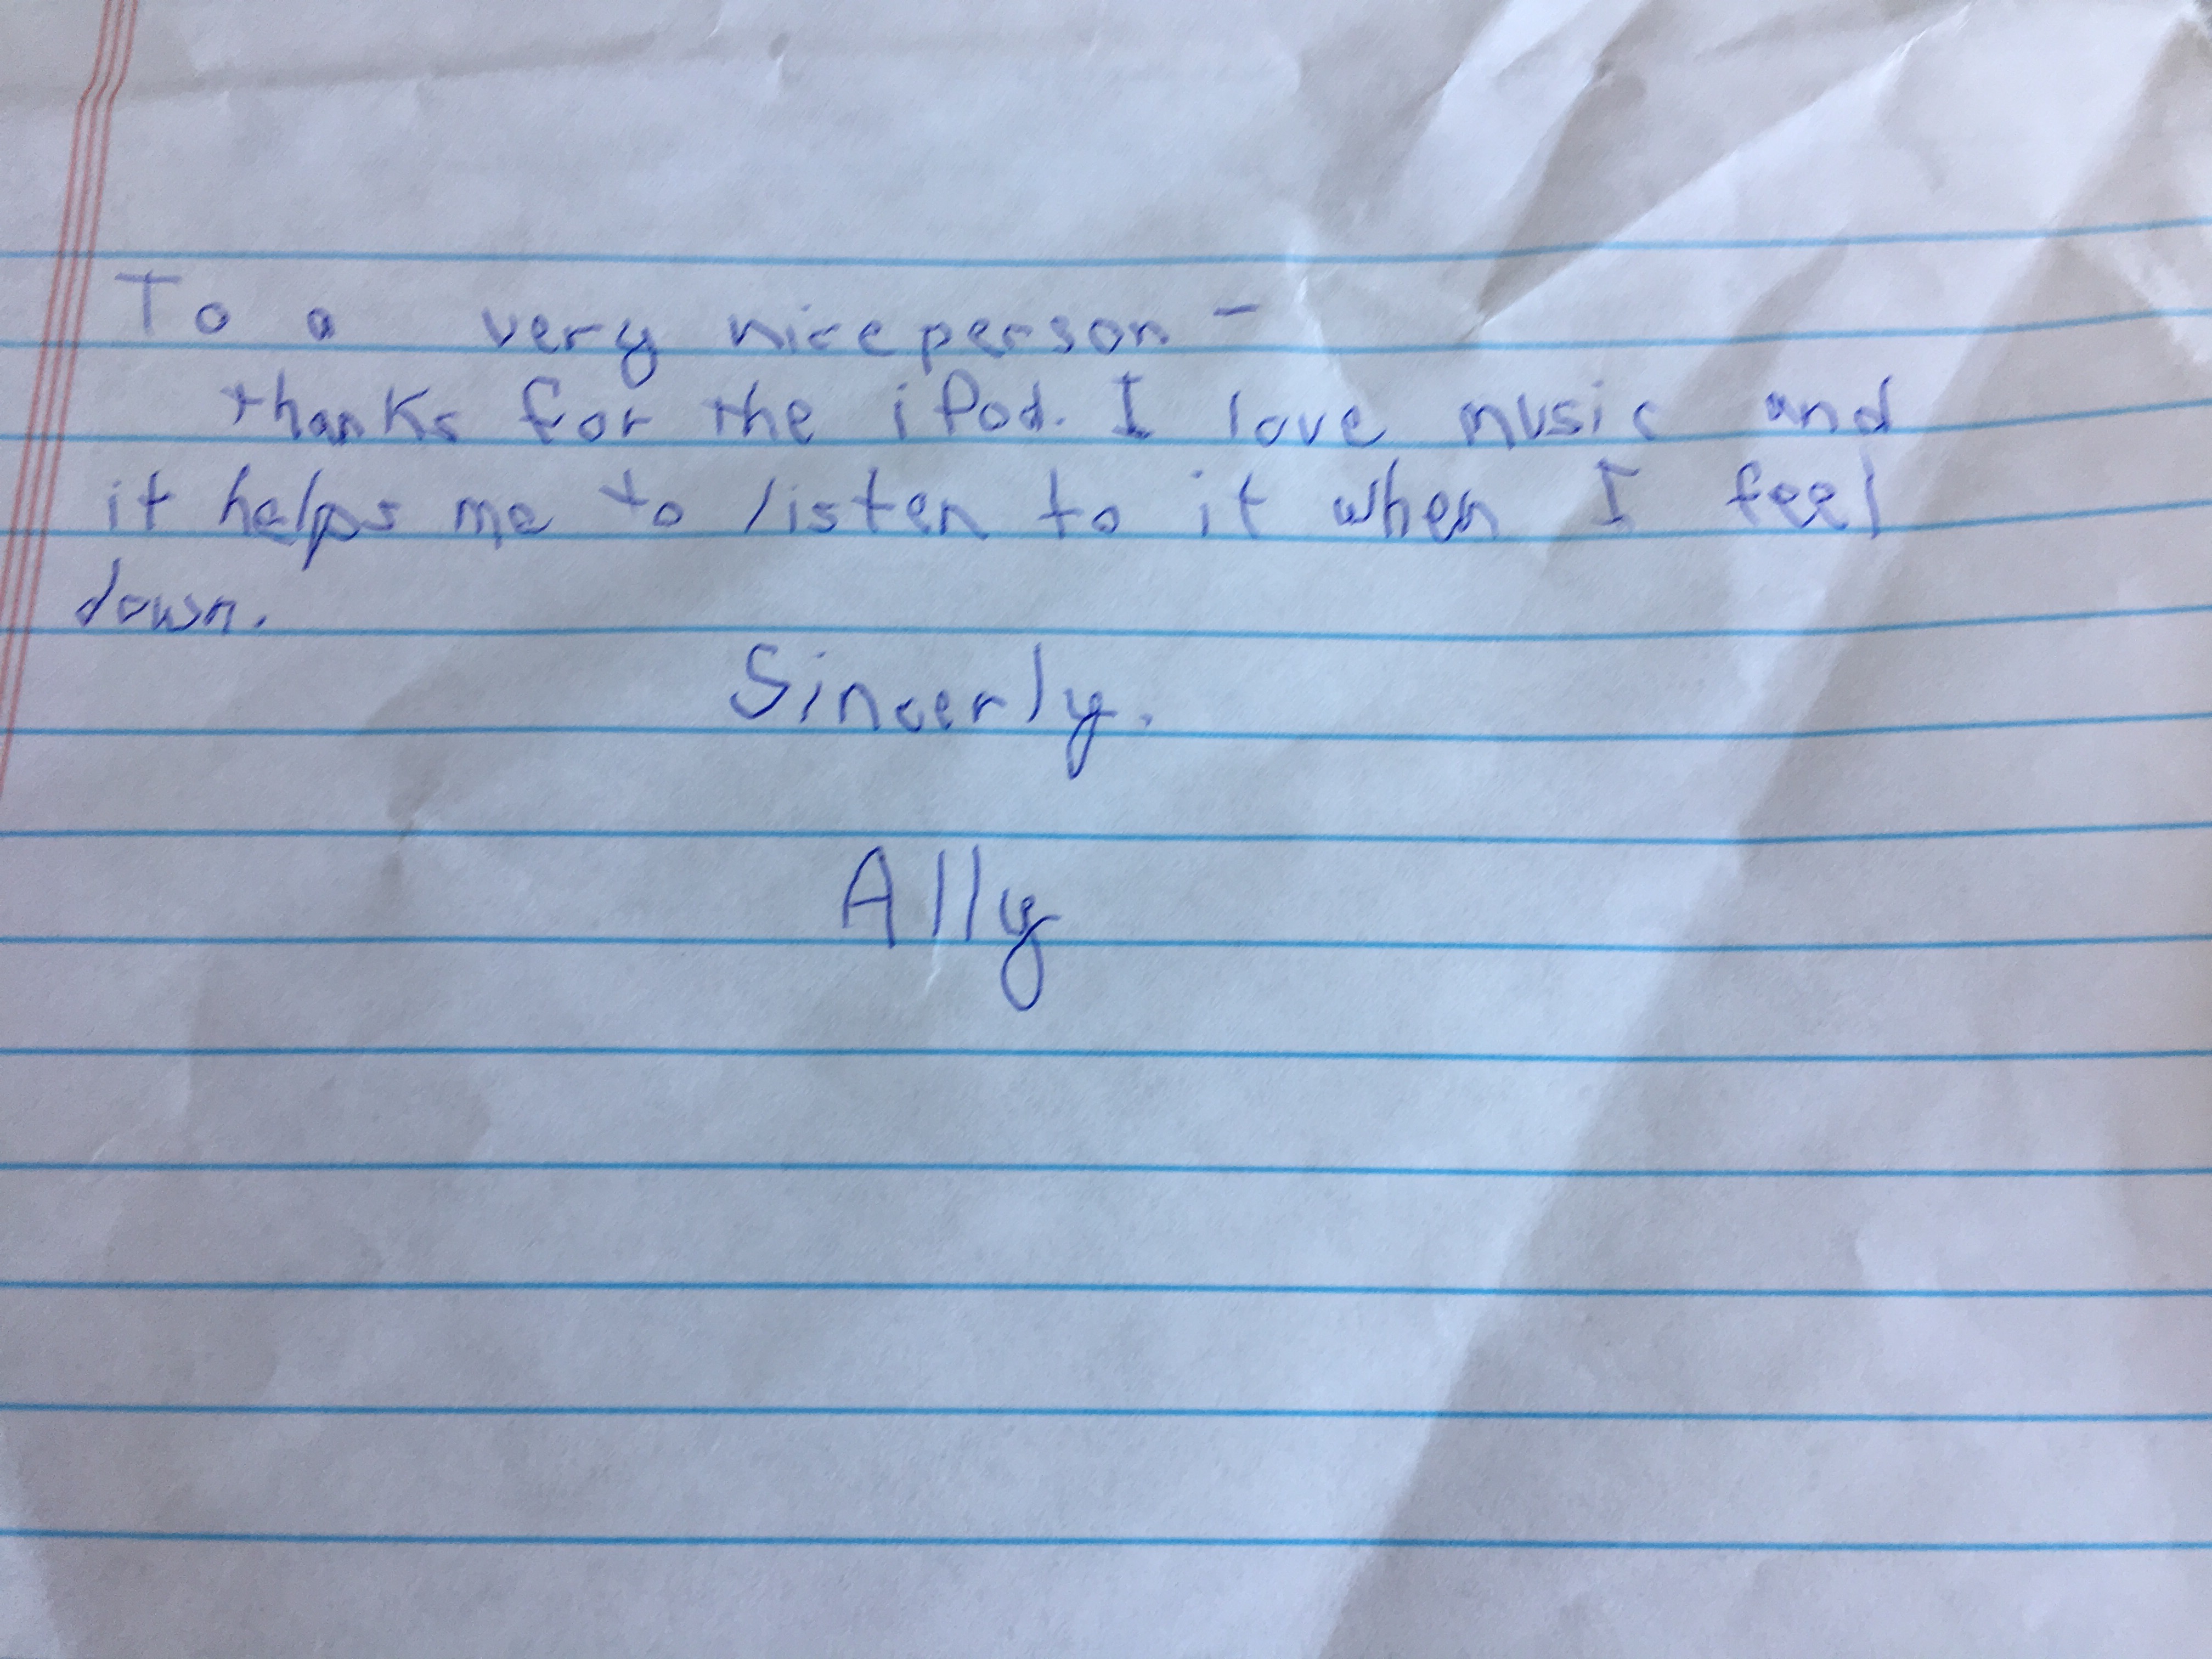 To a very nice person -
thanks for the iPod. I love music and
it helps me to listen to it when I feel
down.
Sincerly.
Ally